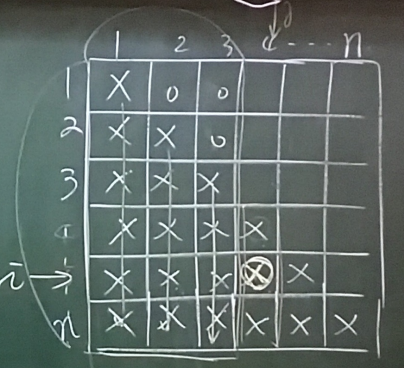 j
1 2 3 ---- n
1 X 0 0
2 X X 0
3 X X X
X X X X
i → X X X X X
n X X X X X X